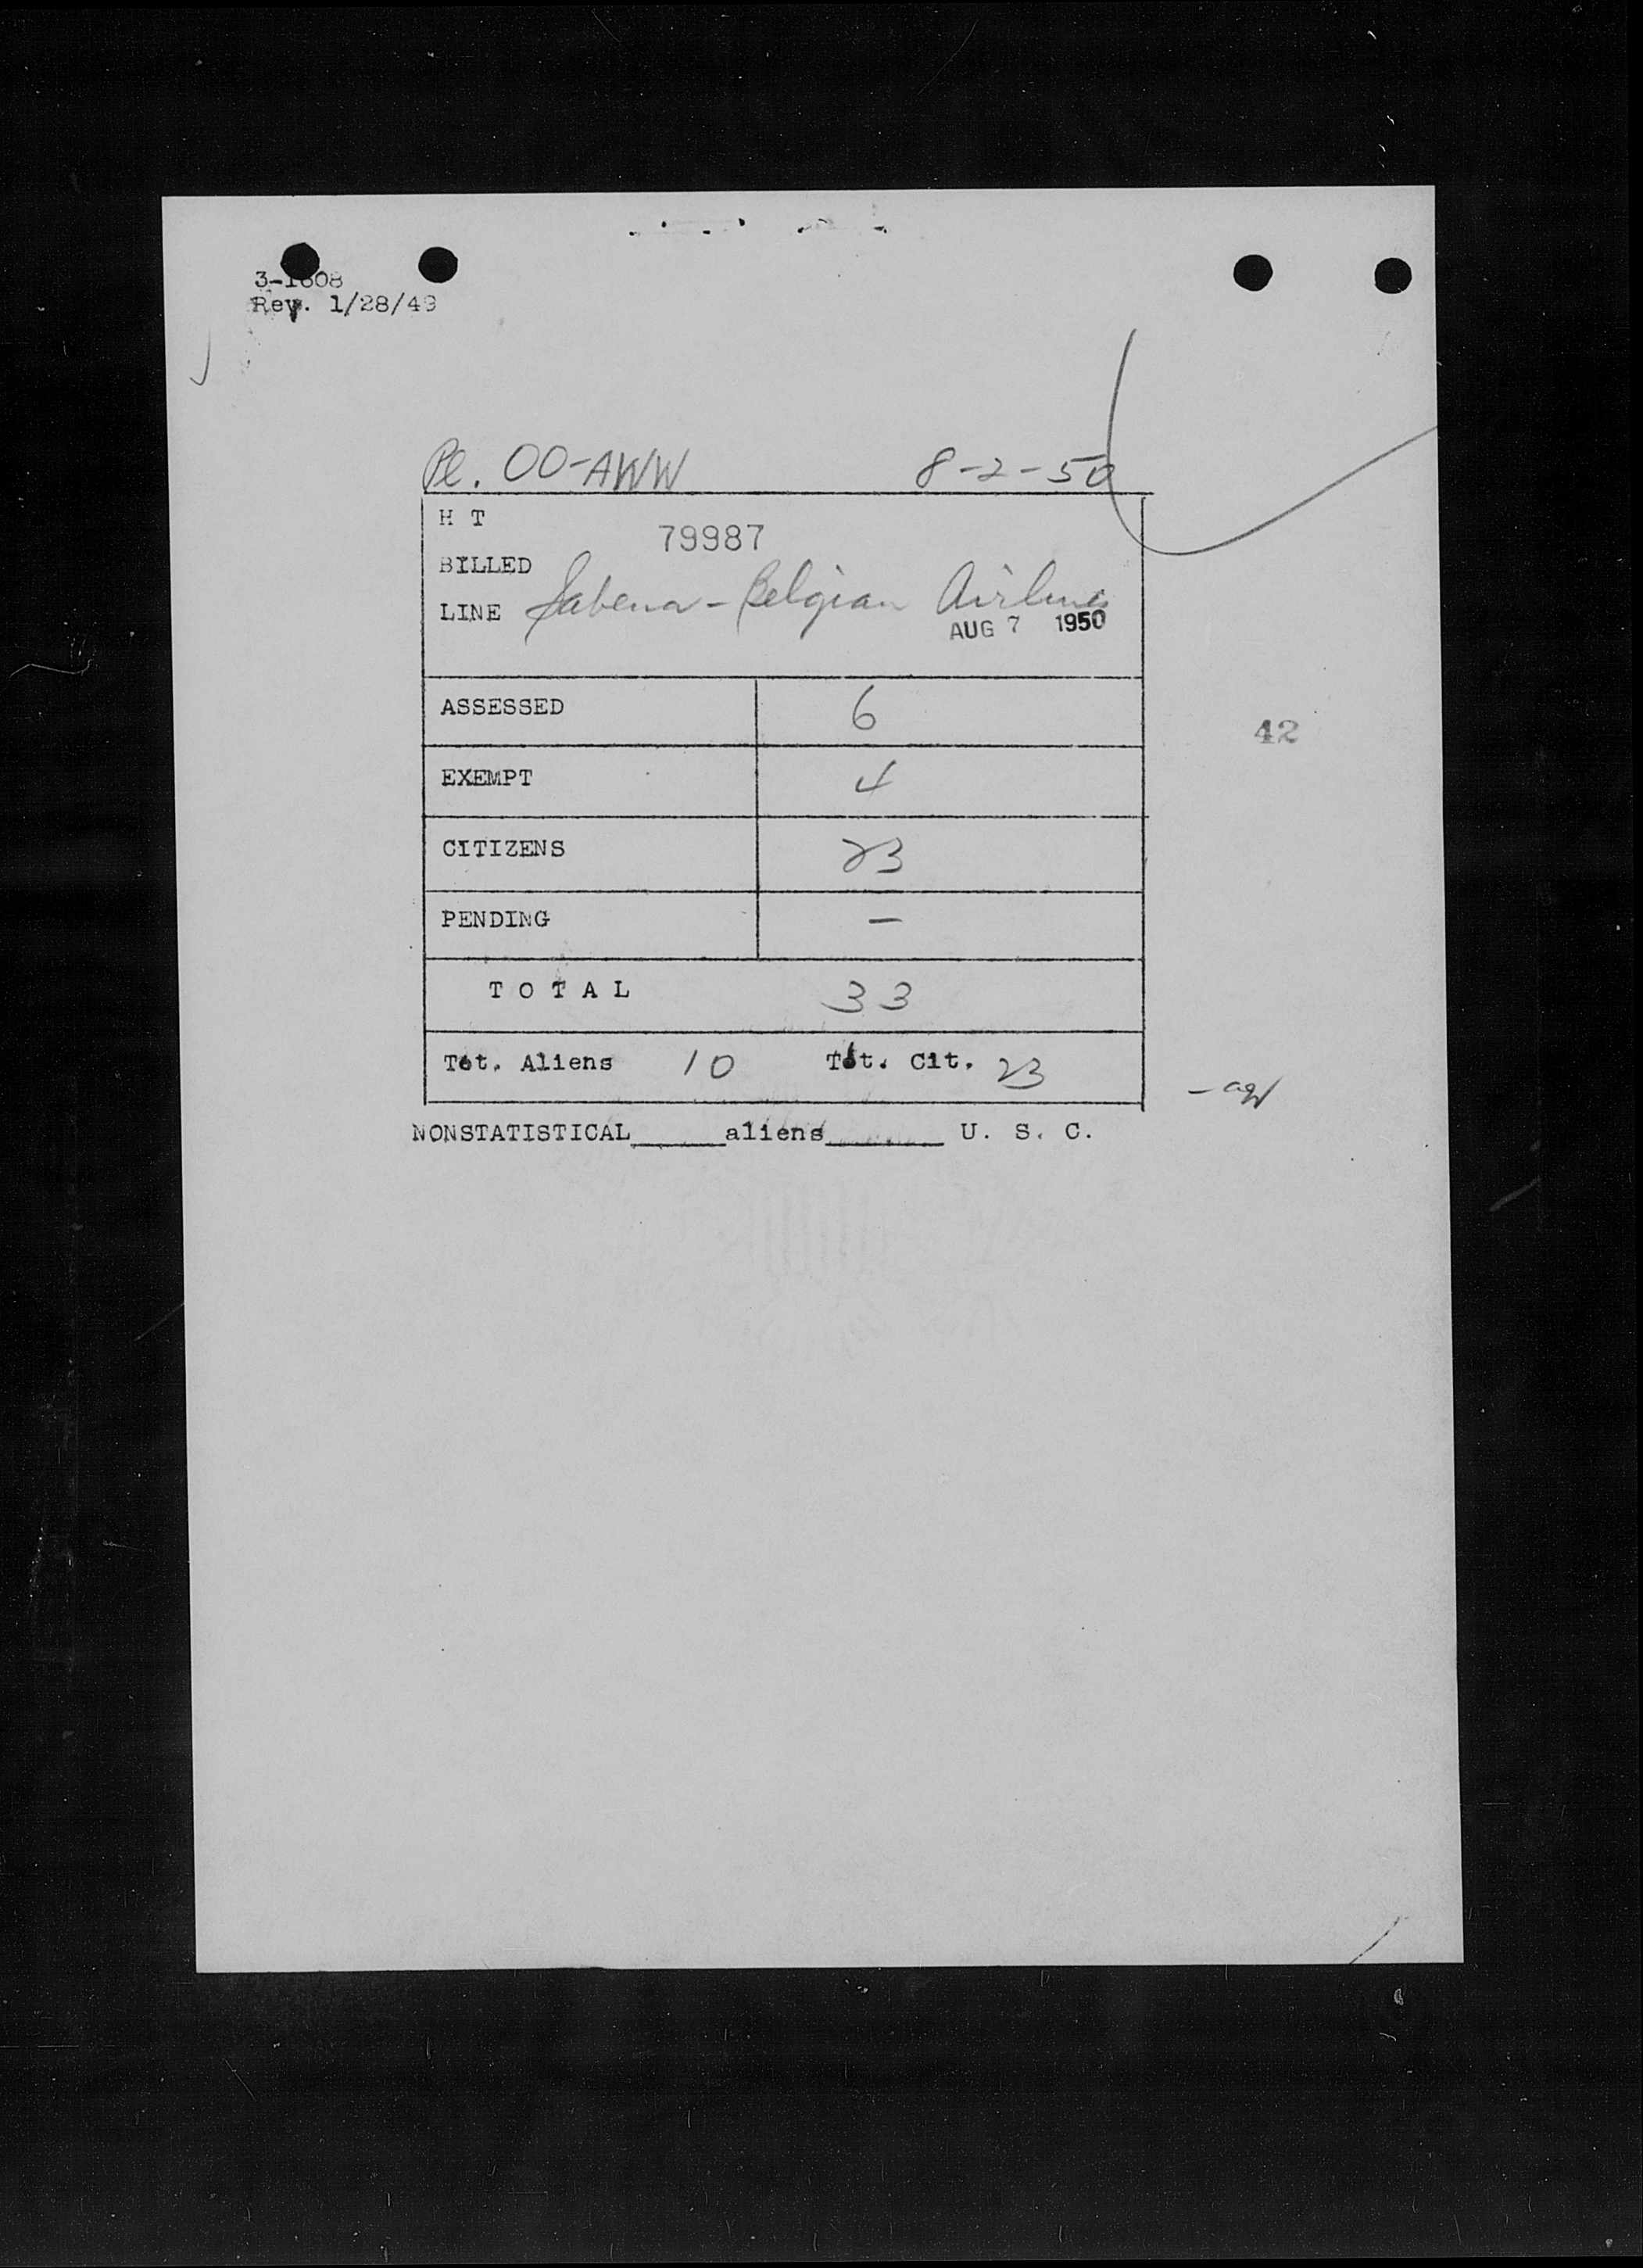 3-1608
Rev. 1/28/49
Pl. OO-AWW 8-2-50
H T
79987
BILLED
LINE Sabena - Belgian Airlines
AUG 7 1950
ASSESSED 6
42
EXEMPT 4
CITIZENS 23
PENDING —
T O T A L 33
Tot. Aliens 10 Tot. Cit. 23
NONSTATISTICAL______aliens________ U. S. C.